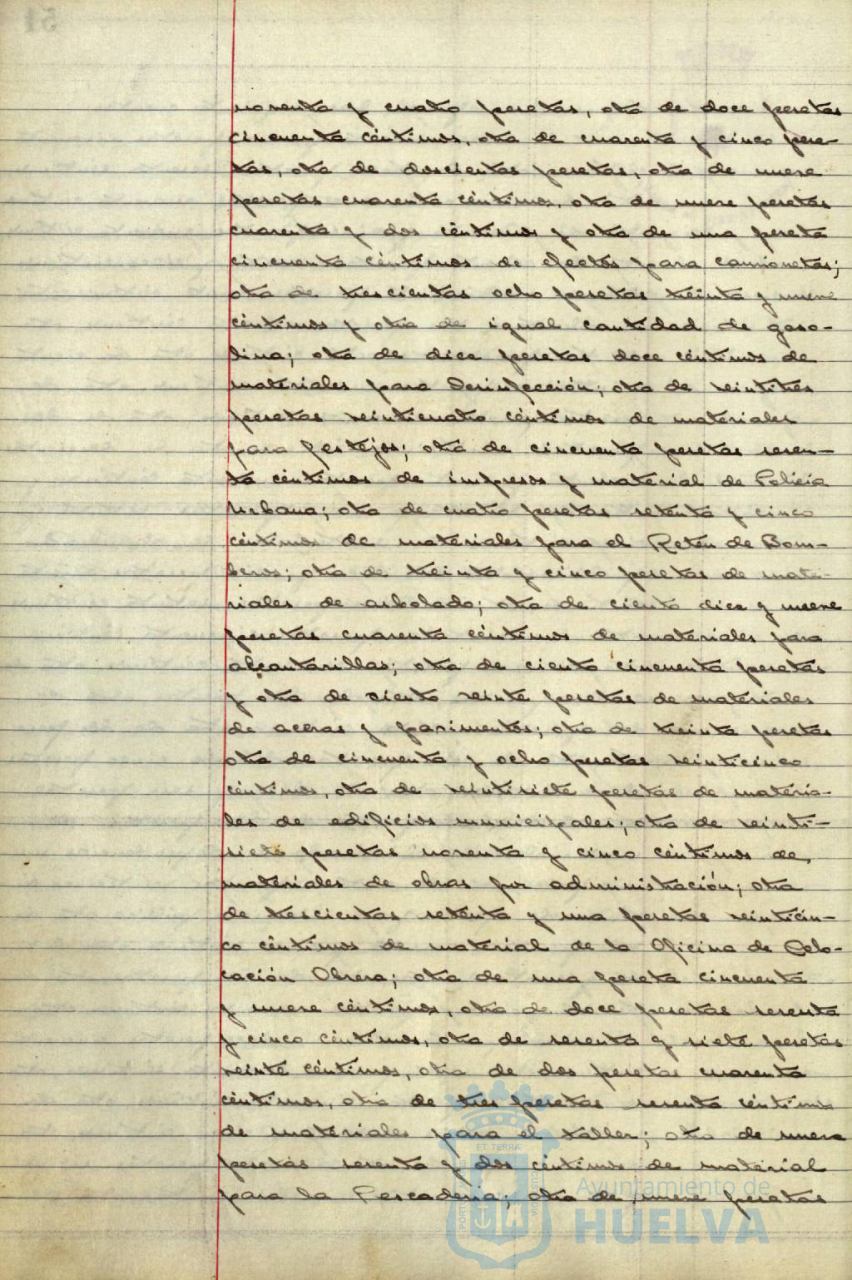 noventa y cuatro pesetas, otra de doce pesetas
cincuenta céntimos, otra de cuarenta y cinco pese-
tas, otra de doscientas pesetas, otra de nueve
pesetas cuarenta céntimos, otra de nueve pesetas
cuarenta y dos céntimos y otra de una peseta
cincuenta céntimos de efectos para camionetas;
otra de trescientas ocho pesetas treinta y nueve
céntimos y otra de igual cantidad de gaso-
lina; otra de diez pesetas doce céntimos de
materiales para Desinfección; otra de veintitres
pesetas veinticuatro céntimos de materiales
para festejos; otra de cincuenta pesetas seten-
ta céntimos de impresos y material de Policía
Urbana; otra de cuatro pesetas setenta y cinco
céntimos de materiales para el Retén de Bom-
beros; otra de treinta y cinco pesetas de mate-
riales de arbolado; otra de ciento diez y nueve
pesetas cuarenta céntimos de materiales para
alcantarillas; otra de ciento cincuenta pesetas
y otra de ciento veinte pesetas de materiales
de aceras y pavimentos; otra de treinta pesetas
otra de cincuenta y ocho pesetas veinticinco
céntimos, otra de veintisiete pesetas de materia-
les de edificios municipales; otra de veinti-
siete pesetas noventa y cinco céntimos de,
materiales de obras por administración; otra
de trescientas setenta y una pesetas veinticin-
co céntimos de material de la Oficina de Colo-
cación Obrera; otra de una peseta cincuenta
y nueve céntimos, otra de doce pesetas sesenta
y cinco céntimos, otra de sesenta y siete pesetas
veinte céntimos, otra de dos pesetas cuarenta
céntimos, otra de tres pesetas sesenta céntimos
de materiales para el taller; otra de nueve
pesetas sesenta y dos céntimos de material
para la Pescadería; otra de nueve pesetas
Ayuntamiento de
HUELVA